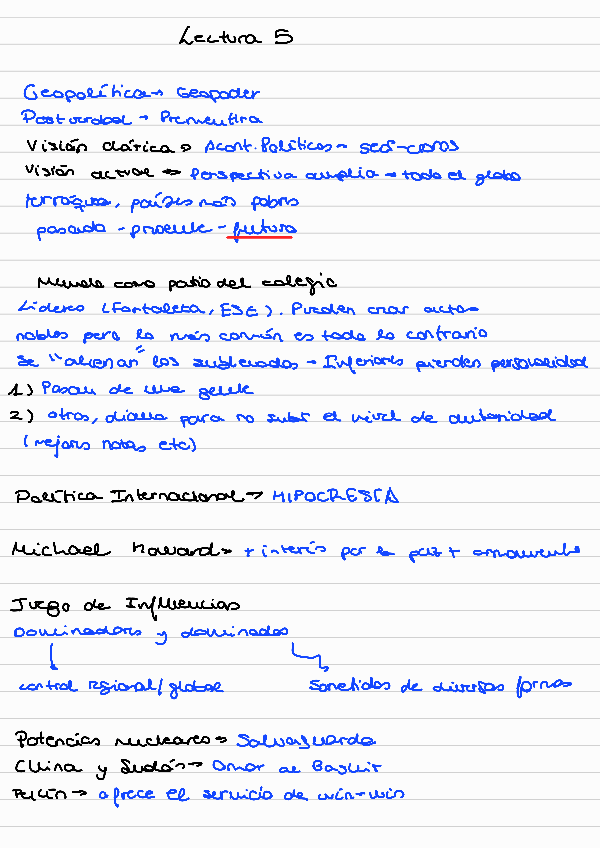 Lectura 5
Geopolítica → Geopoder
Postverdad → Prementira
Visión clásica → Acont. Políticos →
Visión actual → Perspectiva amplia → todo el globo
terráqueo, países más pobres
pasado - presente - futuro
Mundo como patio del colegio
Líderes (Fortaleza, ESE). Pueden crear actos
nobles pero lo más común es todo lo contrario
Se "alienan" los sublevados → Inferiores pierden personalidad
1) Pasan de una gente
2) otros, diana para no subir el nivel de autoridad
(mejores notas etc)
Política Internacional → HIPOCRESÍA
Michael Howard → + interés por la paz + armamento
Juego de Influencias
Dominadores y dominados
control regional/global sometidos de diversas formas
Potencias nucleares → Salvaguarda
China y Sudán → Omar al Bashir
Pekín → ofrece el servicio de win-win